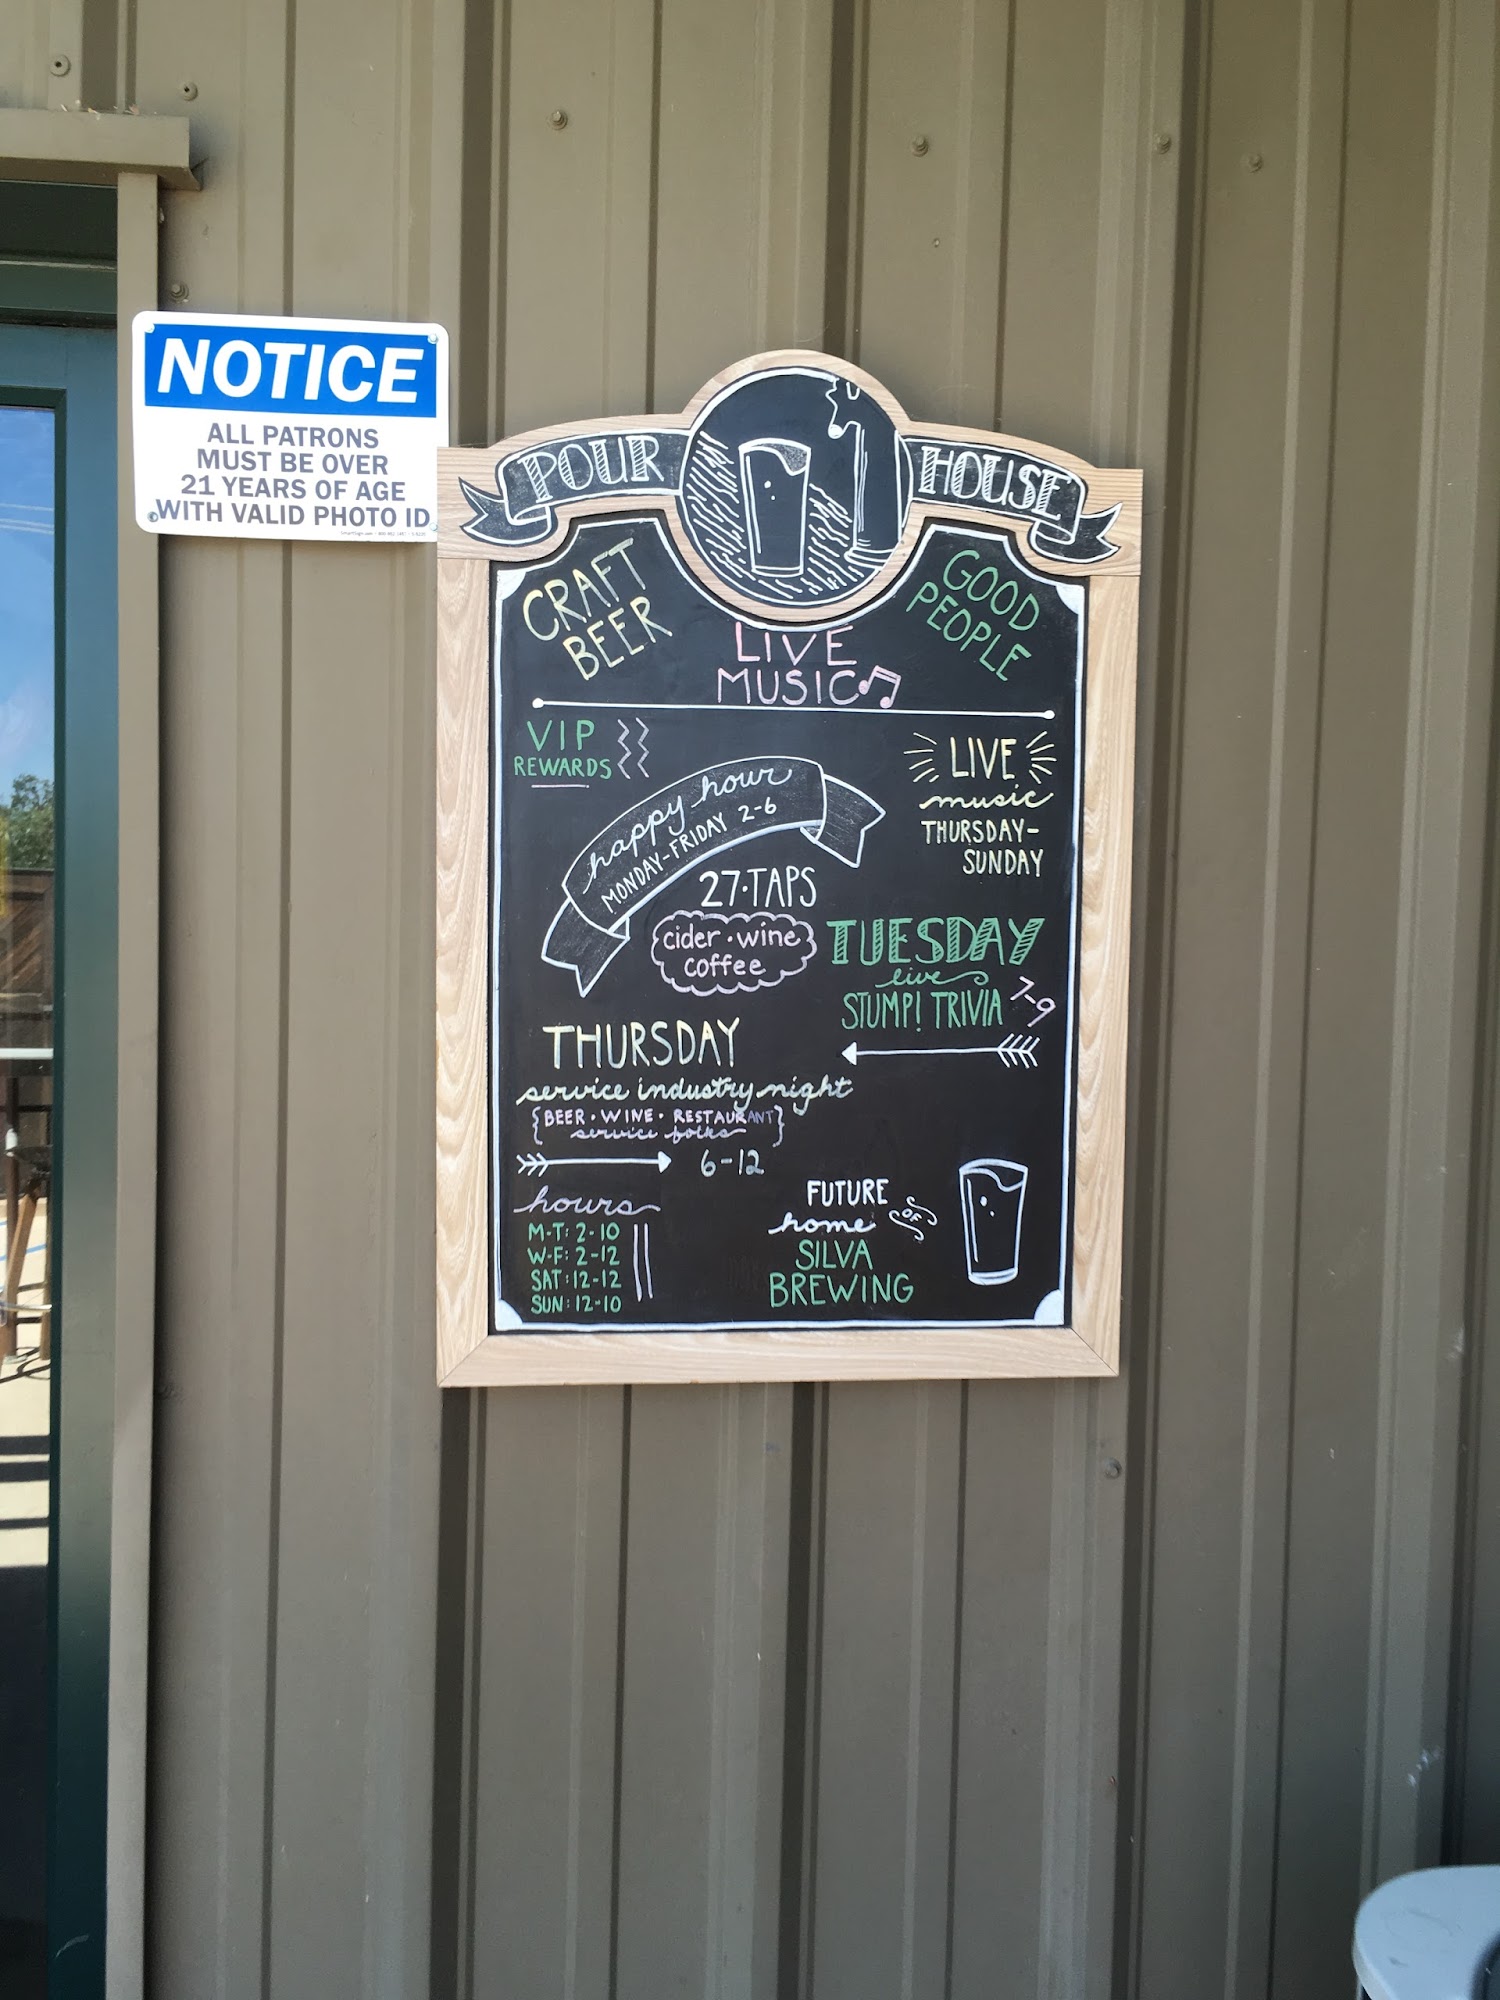 NOTICE
ALL PATRONS
MUST BE OVER
21 YEARS OF AGE
WITH VALID PHOTO ID
POUR HOUSE
CRAFT
BEER
LIVE
MUSIC
GOOD
PEOPLE
VIP
REWARDS
happy hour
MONDAY-FRIDAY 2-6
LIVE
music
THURSDAY-
SUNDAY
27·TAPS
cider·wine
coffee
TUESDAY
live
STUMP! TRIVIA 7-9
THURSDAY
service industry night
{BEER·WINE·RESTAURANT
service folks}
6-12
hours
M-T: 2-10
W-F: 2-12
SAT: 12-12
SUN: 12-10
FUTURE
home OF
SILVA
BREWING